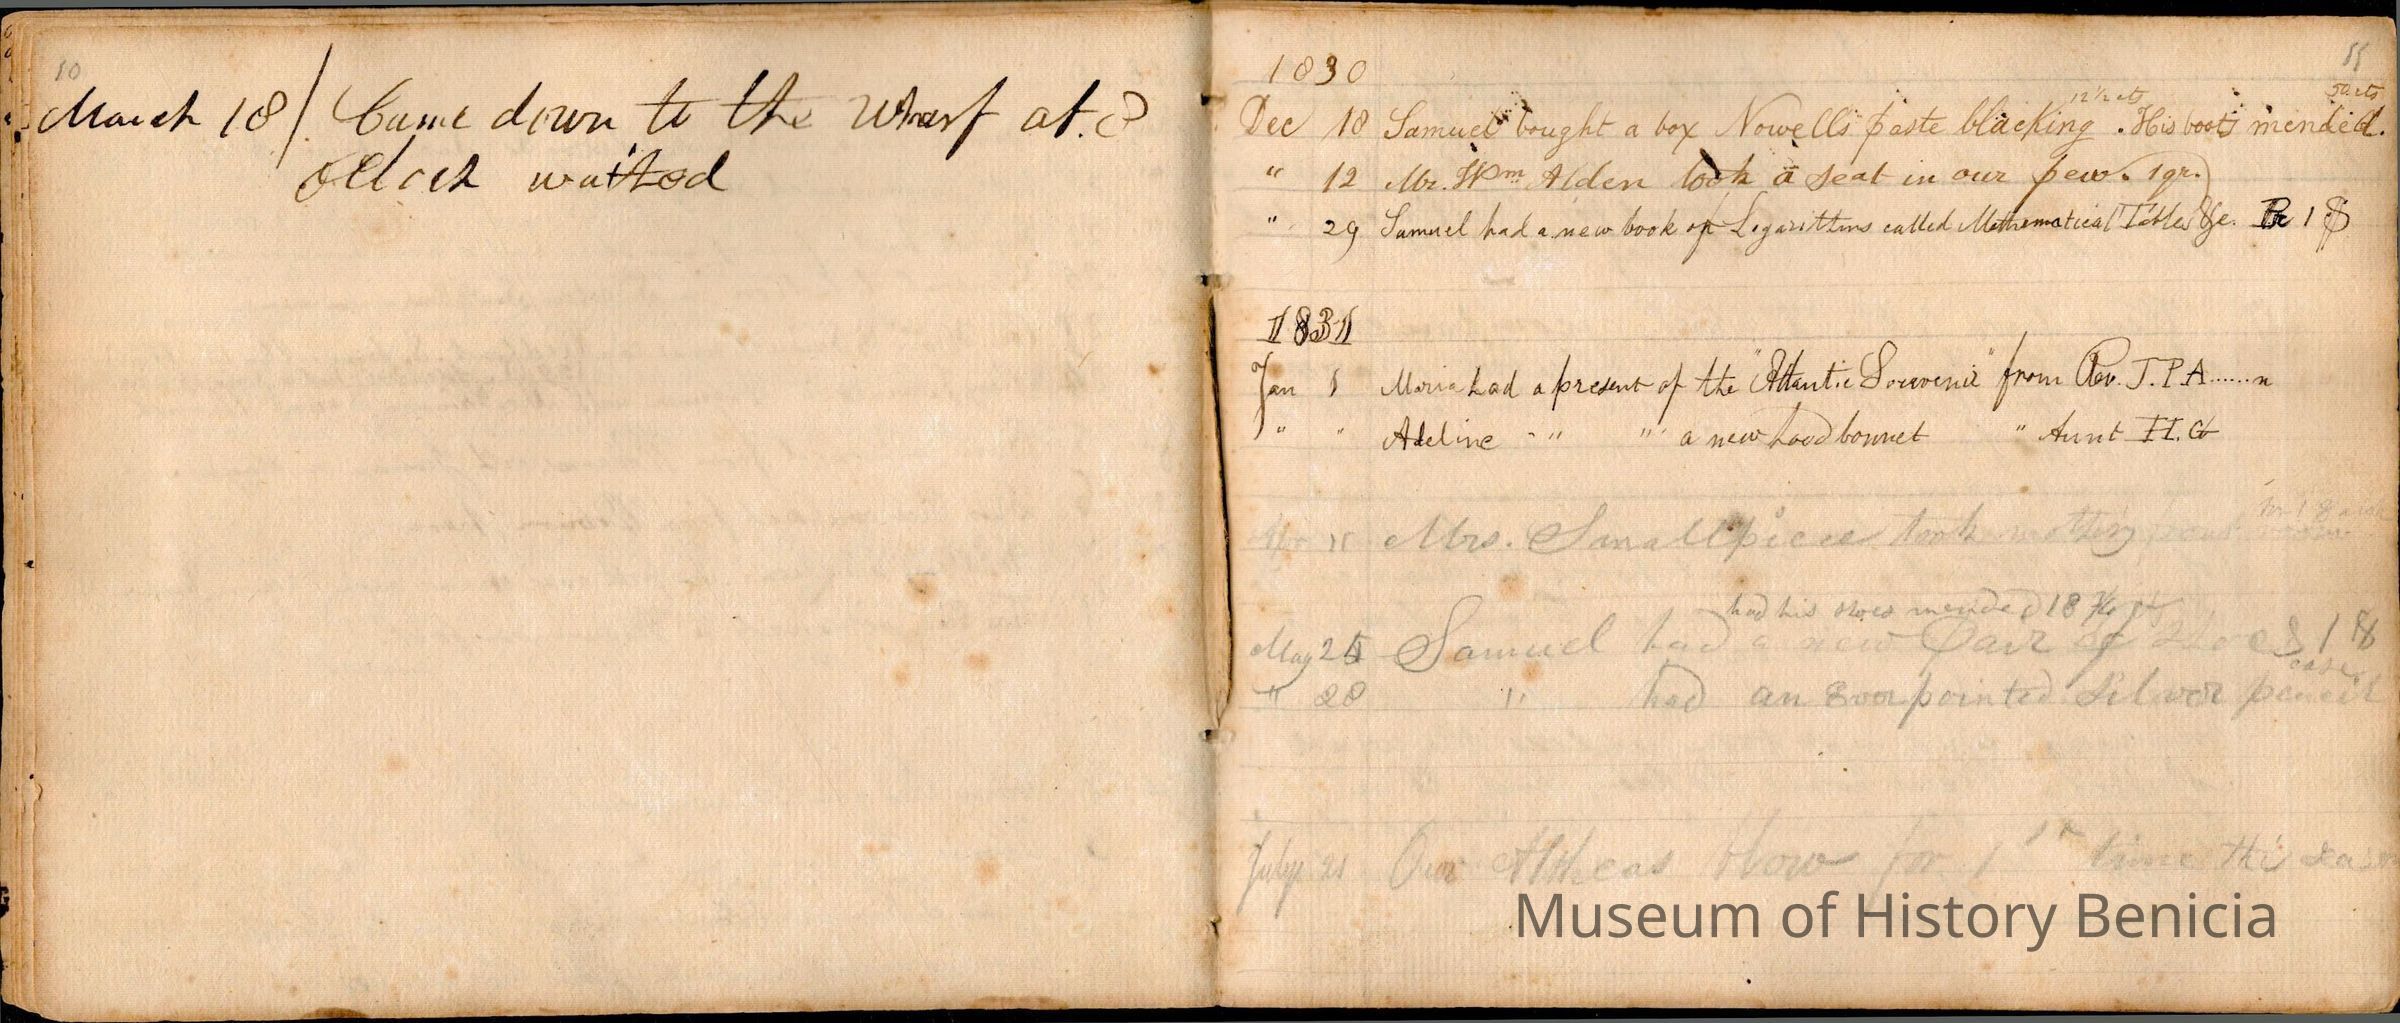 10
March 18 / Came down to the Wharf at. 8
oclock waited
11
1830
12 1/2 cts 50 cts
Dec 18 Samuel bought a box Nowells paste blacking. His boots mended.
" 12 Mr. Wm Alden took a seat in our pew. 1 qr.
" 29 Samuel had a new book of Logarithms called Mathematical Tables &c. Pr 1 $
1831
Jan 1 Maria had a present of the "Atlantic Souvenir" from Rev. T. P. A......n
" " Adeline " " " a new hood bonnet " Aunt H. G
11 Mrs. Smallpiece took
had his shoes mended 18 3/4 cts
May 25 Samuel had a new Pair of Shoes 1 $
case
" 28 " had an Ever pointed Silver pencil
July 21 Our Altheas blow for 1st time this
Museum of History Benicia